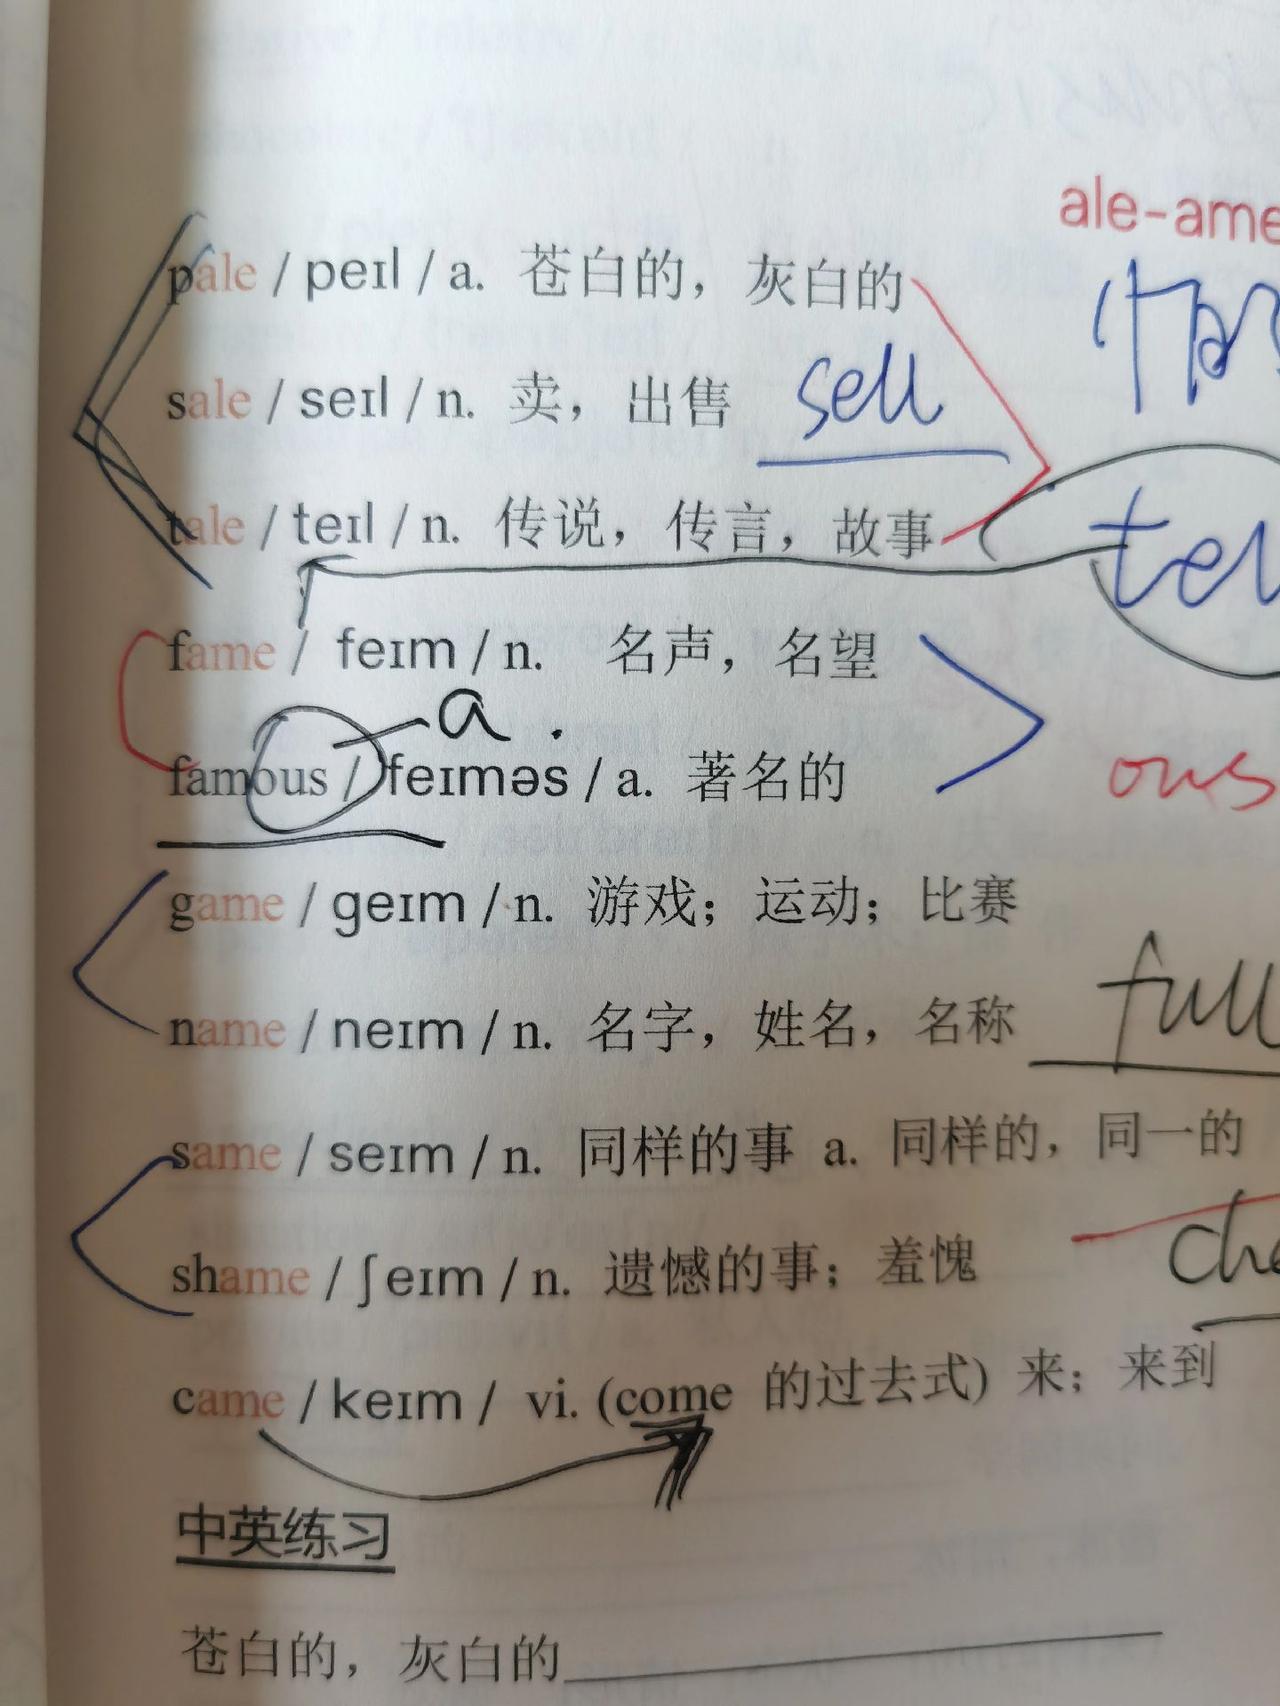 ale-ame
pale / peɪl / a. 苍白的，灰白的
sale / seɪl / n. 卖，出售 sell
tale / teɪl / n. 传说，传言，故事
fame / feɪm / n. 名声，名望
a.
famous / feɪməs / a. 著名的 ous
game / geɪm / n. 游戏；运动；比赛
name / neɪm / n. 名字，姓名，名称 full
same / seɪm / n. 同样的事 a. 同样的，同一的
shame / ʃeɪm / n. 遗憾的事；羞愧
came / keɪm / vi. (come 的过去式) 来；来到
中英练习
苍白的，灰白的